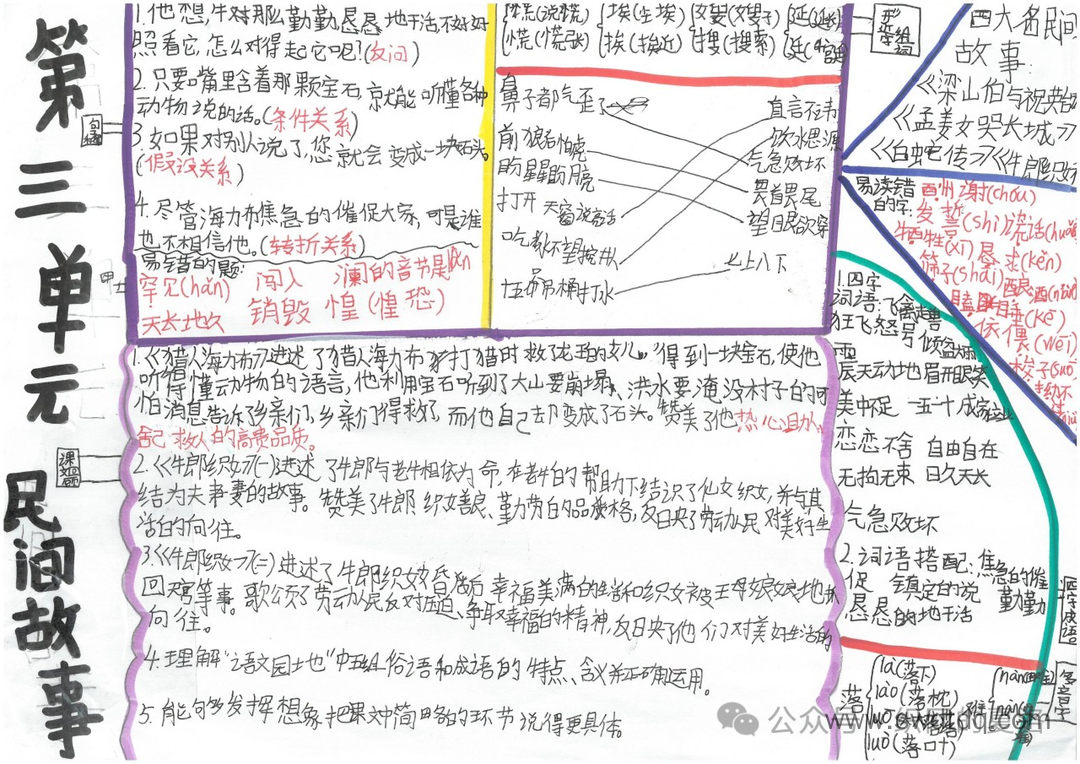 第三单元 民间故事
句型
1. 他想,牛对那么勤勤恳恳地干活,不好好
照看它,怎么对得起它呢?(反问)
2. 只要嘴里含着那颗宝石,就能听懂各种
动物说的话。(条件关系)
3. 如果对别人说了,您就会变成一块石头。
(假设关系)
4. 尽管海力布焦急的催促大家,可是谁
也不相信他。(转折关系)
易错的题:
罕见(hǎn) 闯入 澜的音节是lán
天长地久 销毁 惶(惶恐)
谎(说谎) 埃(尘埃) 嫂(嫂子) 延(延长)
慌(慌张) 挨(挨近) 搜(搜索) 廷
形近字组词
鼻子都气歪了
前怕狼后怕虎
盼星星盼月亮
打开天窗说亮话
吃水不忘挖井人
十五个吊桶打水
直言不讳
饮水思源
气急败坏
畏首畏尾
望眼欲穿
七上八下
四大名民间
故事:
《梁山伯与祝英台
《孟姜女哭长城》
《白蛇传》《牛郎织女
易读错
的字:
酉州谢(chóu)
发誓(shì)谎话(huǎng
牺牲(xī)恳求(kěn)
筛子(shāi)酿酒(niàng)
瞌睡(kē)
偎(wēi)
梭子(suō)
课文知识
1.《猎人海力布》讲述了猎人海力布打猎时救了龙王的女儿,得到一块宝石,使他
听得懂动物的语言,他利用宝石听到了大山要崩塌、洪水要淹没村子的可
怕消息告诉了乡亲们,乡亲们得救了,而他自己却变成了石头。赞美了他热心助人、
舍己救人的高贵品质。
2.《牛郎织女(一)》讲述了牛郎与老牛相依为命,在老牛的帮助下结识了仙女织女,并与其
结为夫妻的故事。赞美了牛郎织女善良、勤劳的品质格,反映了劳动人民对美好生
活的向往。
3.《牛郎织女(二)》讲述了牛郎织女婚后幸福美满的生活和织女被王母娘娘地抓
回天宫等事。歌颂了劳动人民反对压迫、争取幸福的精神,反映了他们对美好生活的
向往。
4. 理解"语文园地"中五组俗语和成语的特点、含义并正确运用。
5. 能够发挥想象把课文中简略的环节说得更具体。
1. 四字
词语:飞禽走兽
狂风怒号 倾盆大雨
震天动地 眉开眼笑
美中不足 一五一十 成家立业
恋恋不舍 自由自在
无拘无束 日久天长
气急败坏
2. 词语搭配:焦急的催
促 镇定的说 勤勤
恳恳的地干活
词字成语
多音字
落
là(落下)
lào(落枕)
luō(大大落落)
luò(落叶)
难
nán
nàn
公众号